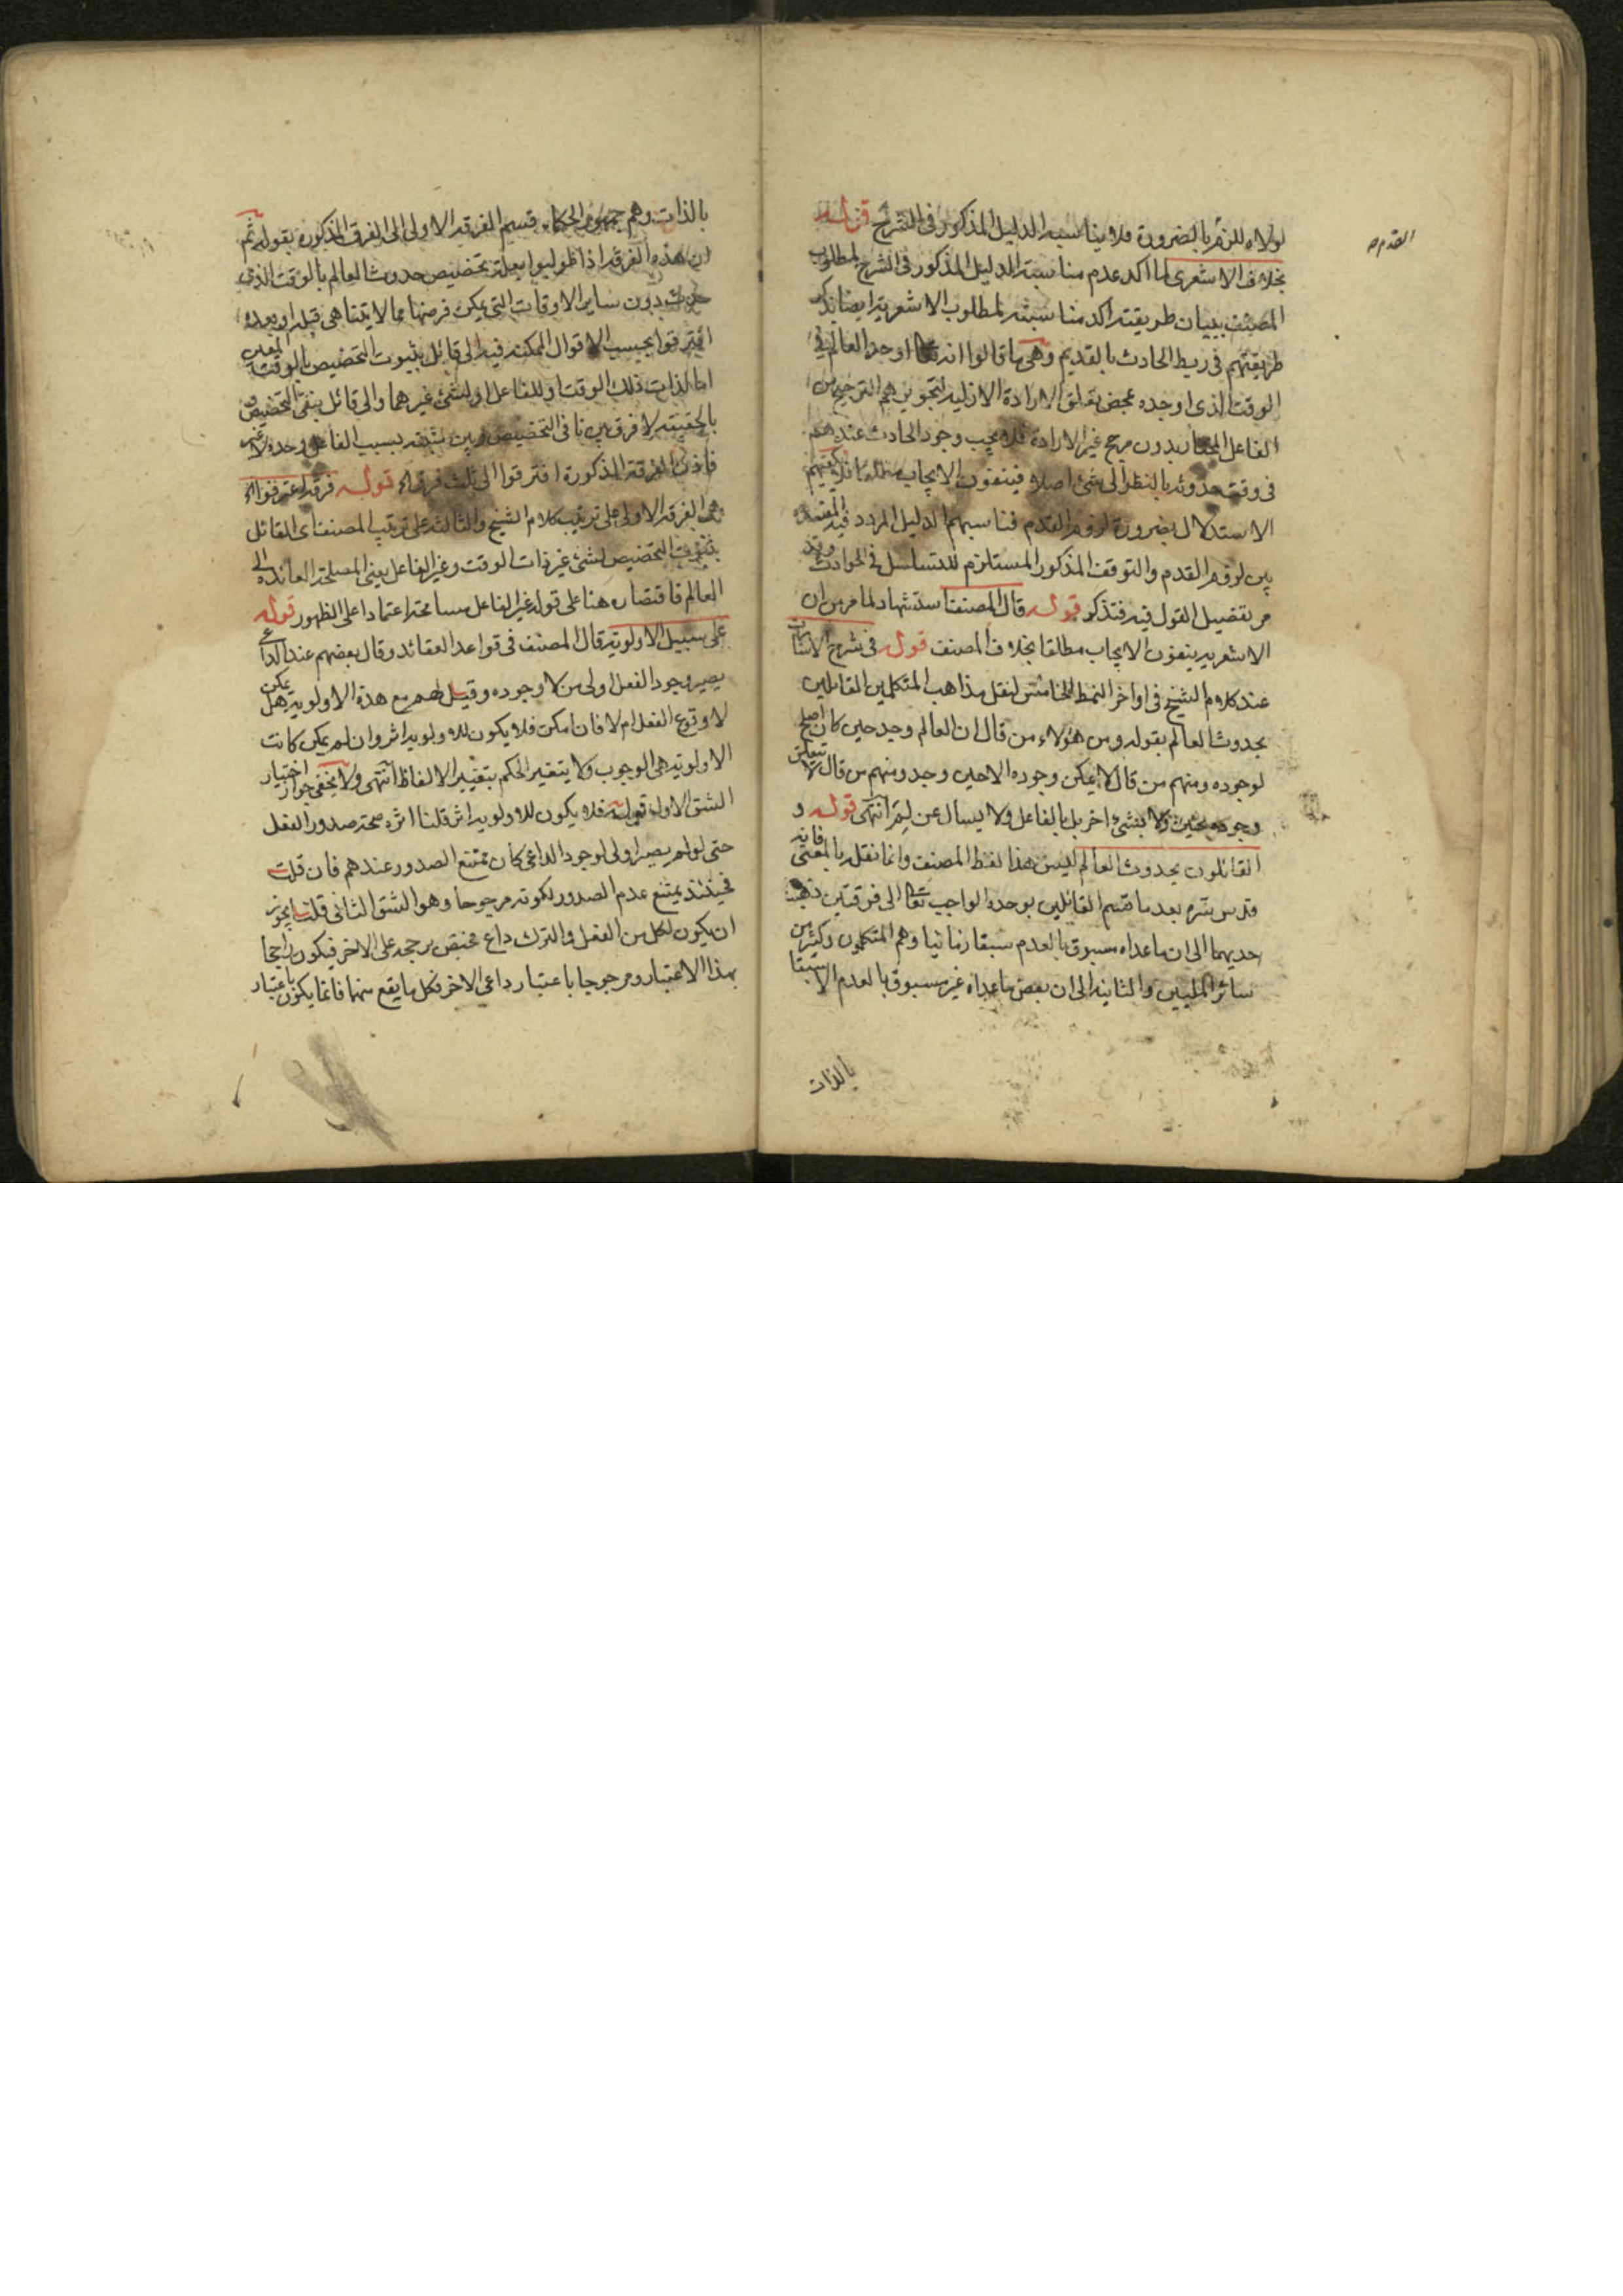 لولاه للزم بالضرورة فلا يناسبه الدليل المذكور فى الشرح قوله
بخلاف الاشعرى لما اكد عدم مناسبة الدليل المذكور فى الشرح لمطلوب
المصنف ببيان طريقته اكد مناسبته لمطلوب الاشعرية ايضا
طريقتهم فى ربط الحادث بالقديم وهى ما قالوا انه تعالى اوجد العالم فى
الوقت الذى اوجده بمحض تعلق الارادة الازلية لتجويزهم الترجيح من
الفاعل المختار بدون مرجح غير الارادة فلا يجب وجود الحادث عندهم
فى وقت حدوثه بالنظر الى شئ اصلا فينفون الايجاب مطلقا
الاستدلال بضرورة لزوم القدم فناسبهم الدليل المردد فيه
بين لزوم القدم والتوقف المذكور المستلزم للتسلسل فى الحوادث وقد
مر تفصيل القول فيه فتذكر قوله قال المصنف استشهاد لما مر من ان
الاشعرية ينفون الايجاب مطلقا بخلاف المصنف قوله فى شرح الاشارات
عند كلام الشيخ فى اواخر النمط الخامس لنقل مذاهب المتكلمين القائلين
بحدوث العالم بقوله ومن هؤلاء من قال ان العالم وجد حين كان اصلح
لوجوده ومنهم من قال لا يمكن وجوده الا حين وجد ومنهم من قال لا يتعلق
وجوده بحين ولا بشئ اخر بل بالفاعل ولا يسأل عن لم انتهى قوله و
القائلون بحدوث العالم ليس هذا لفظ المصنف وانما نقله بالمعنى فانه
قدس سره بعد ما قسم القائلين بوحدة الواجب تعالى الى فرقتين ذهبت
احديهما الى ان ما عداه مسبوق بالعدم سبقا زمانيا وهم المتكلمون وكثير من
سائر المليين والثانية الى ان بعض ما عداه غير مسبوق بالعدم الا سبقا
بالذات
القدم
بالذات وهم جمهور الحكماء قسم الفرقة الاولى الى الفرق المذكورة بقوله ثم
ان هذه الفرقة اذا طولبوا بعلة تخصيص حدوث العالم بالوقت الذى
حدث بدون ساير الاوقات التى يمكن فرضها مما لا يتناهى قبله او بعده
افترقوا بحسب الاقوال الممكنة فيه الى قائل بثبوت التخصيص بالوقت المعين
اما لذات ذلك الوقت او للفاعل او لشئ غيرهما والى قائل بنفى التخصيص و
بالحقيقة لا فرق بين نافى التخصيص وبين مثبته بسبب الفاعل وحده لا غير
فاذن الفرقة المذكورة افترقوا الى ثلث فرق قوله فرقة اعترفوا
هى الفرقة الاولى على ترتيب كلام الشيخ والثالثة على ترتيب المصنف اى القائل
بثبوت التخصيص لشئ غير ذات الوقت وغير الفاعل يعنى المصلحة العائدة الى
العالم فاقتصاره هنا على قوله غير الفاعل مسامحة اعتمادا على الظهور قوله
على سبيل الاولوية قال المصنف فى قواعد العقائد وقال بعضهم عند الداعى
يصير وجود الفعل اولى من لا وجوده وقيل لهم مع هذه الاولوية هل يمكن
لا وقوع الفعل ام لا فان امكن فلا يكون للاولوية اثر وان لم يمكن كانت
الاولوية هى الوجوب ولا يتغير الحكم بتغيير الالفاظ انتهى ولا يخفى جواز اختيار
الشق الاول قوله فلا يكون للاولوية اثر قلنا اثره صحة صدور الفعل
حتى لو لم يصر اولى لوجود الداعى كان يمتنع الصدور عندهم فان قلت
فحينئذ يمتنع عدم الصدور لكونه مرجوحا وهو الشق الثانى قلنا يجوز
ان يكون لكل من الفعل والترك داع مختص يرجحه على الاخر فيكون راجحا
بهذا الاعتبار ومرجوحا باعتبار داعى الاخر فكل ما يقع منهما فانما يكون باعتبار